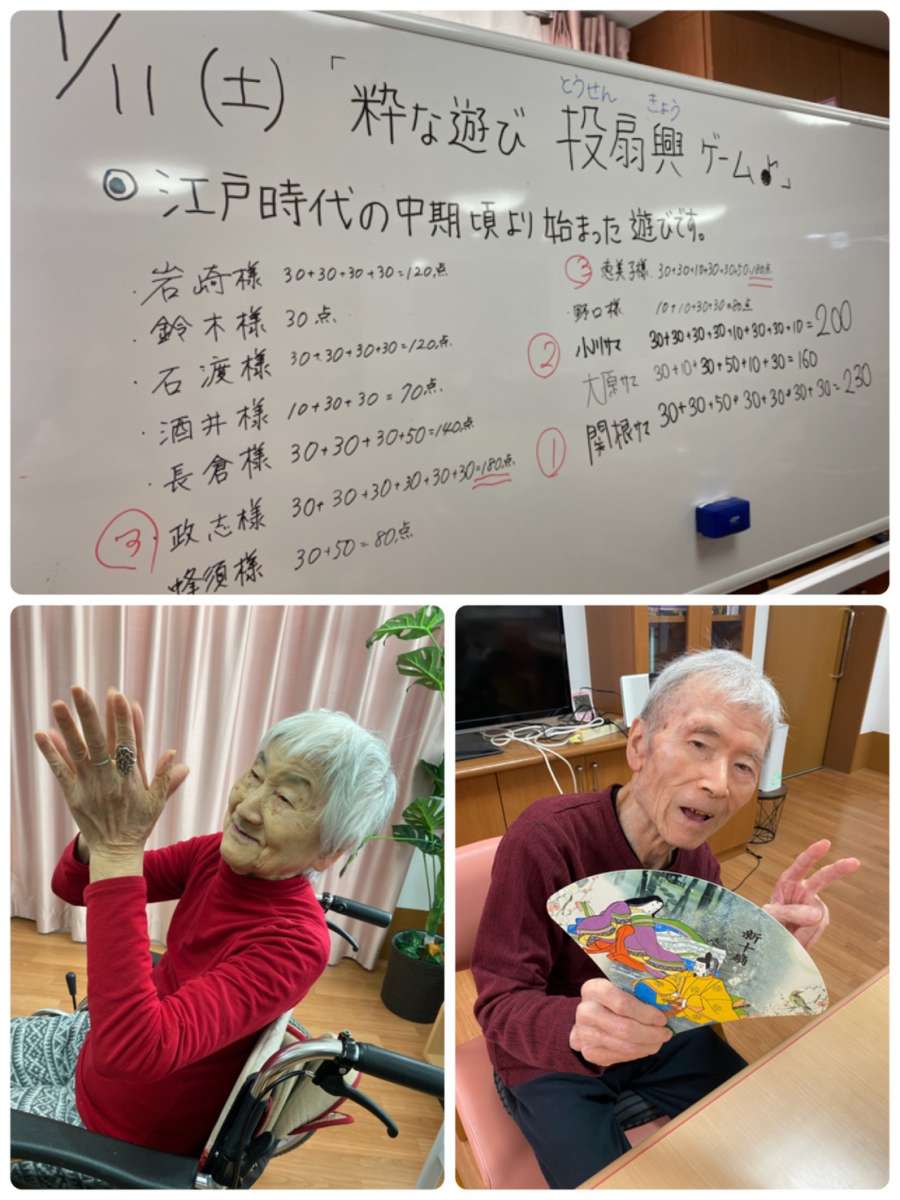 1/11 (土) 「粋な遊び 投扇興 ゲーム♪」
とうせん きょう
◎ 江戸時代の中期頃より始まった遊びです。
・岩崎様 30+30+30+30=120点
・鈴木様 30点
・石渡様 30+30+30+30=120点.
・酒井様 10+30+30=70点.
・長倉様 30+30+30+50=140点
③ 政志様 30+30+30+30+30+30=180点.
蜂須様 30+50=80点
③ 恵美子様 30+30+10+30+30+50=180点
・野口様 10+10+30+30=80点
② 小川サマ 30+30+30+30+10+30+30+10=200
大原サマ 30+10+30+50+10+30=160
① 関根サマ 30+30+50+30+30+30+30=230
新十